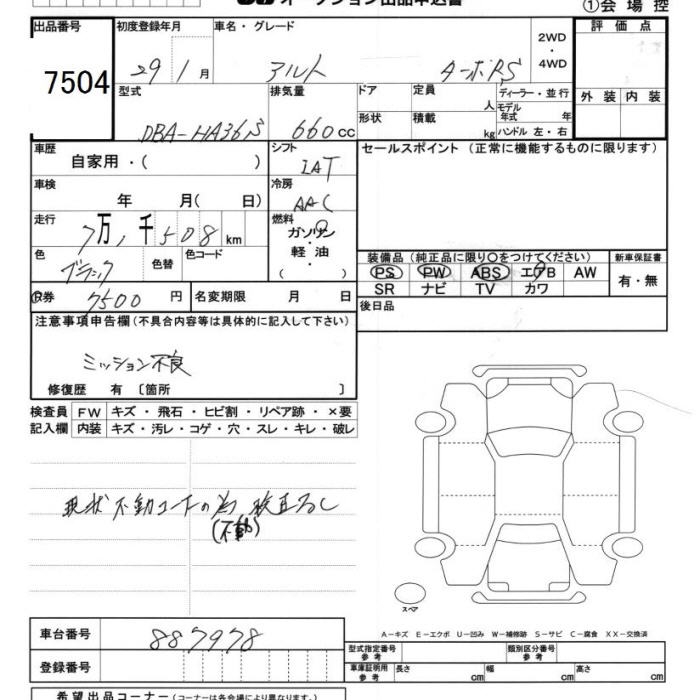 オークション出品申込書
①会場控
出品番号
7504
初度登録年月
29 1月
車名・グレード
アルト ターボRS
2WD
・
4WD
評価点
外装 内装
型式
DBA-HA36S
排気量
660cc
ドア
定員
人
ディーラー・並行
形状
積載
kg
モデル年式 年
ハンドル 左・右
車歴
自家用・( )
シフト
IAT
セールスポイント(正常に機能するものに限ります)
車検
年 月( 日)
冷房
AAC
走行
7万,千508km
燃料
ガソリン
軽油
( )
色
ブラック
色替
色コード
装備品(純正品に限り○をつけてください)
PS PW ABS エアB AW
SR ナビ TV カワ
新車保証書
有・無
Ⓡ券 7500円
名変期限 月 日
後日品
注意事項申告欄(不具合内容等は具体的に記入して下さい)
ミッション不良
修復歴 有〔箇所 〕
検査員 FW キズ・飛石・ヒビ割・リペア跡・×要
記入欄 内装 キズ・汚レ・コゲ・穴・スレ・キレ・破レ
現状 不動コーナーの為
(不動)
スペア
A-キズ E-エクボ U-凹み W-補修跡 S-サビ C-腐食 XX-交換済
車台番号 887978
型式指定番号
参考
類別区分番号
参考
登録番号
車庫証明用
参考
長さ cm 幅 cm 高さ cm
希望出品コーナー(コーナーは各会場により異なります。)